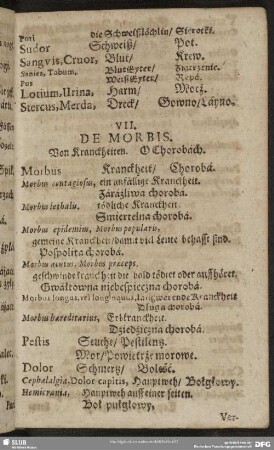 Pori die Schweißlöchlin/ Sierotki.
Sudor Schweiß/ Pot.
Sangvis, Cruor, Blut/ Krew.
Sanies, Tabum, BlutEyter/
Pus WeißEyter/ Ropá.
Lotium, Urina, Harm/ Mocz.
Stercus, Merda, Dreck/ Gowno/ Láyno.
VII.
DE MORBIS.
Von Kranckheiten. O Chorobách.
Morbus Kranckheit/ Chorobá.
Morbus contagiosus, ein anfällige Kranckheit.
Záráźliwa chorobá.
Morbus lethalis, tödliche Kranckheit.
Smiertelna chorobá.
Morbus epidemius, Morbus popularis,
gemeine Kranckheit/ damit viel Leute behafft sind.
Pospolita chorobá.
Morbus acutus, Morbus præceps,
geschwinde kranckheit die bald tödtet oder auffhöret.
Gwáltowna niebespieczna chorobá.
Morbus longus, vel longinquus, langwerende Kranckheit
Długa chorobá.
Morbus hæreditarius, Erbkranckheit.
Dziedźiczna chorobá.
Pestis Seuche/ Pestilentz.
Mor/ Powietrze morowe.
Dolor Schmertz/ Boleść.
Cephalalgia, Dolor capitis, Hauptweh/ Bolgłowy.
Hemicrania, Hauptweh auff einer seiten.
Bol pułgłowy.
Ver-
SLUB